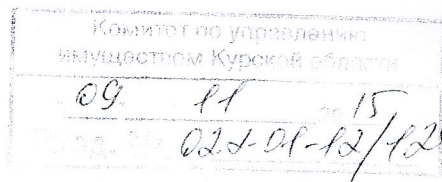 Комитет по управлению
имуществом Курской области
09 11 20 15
02.2-01-12/12